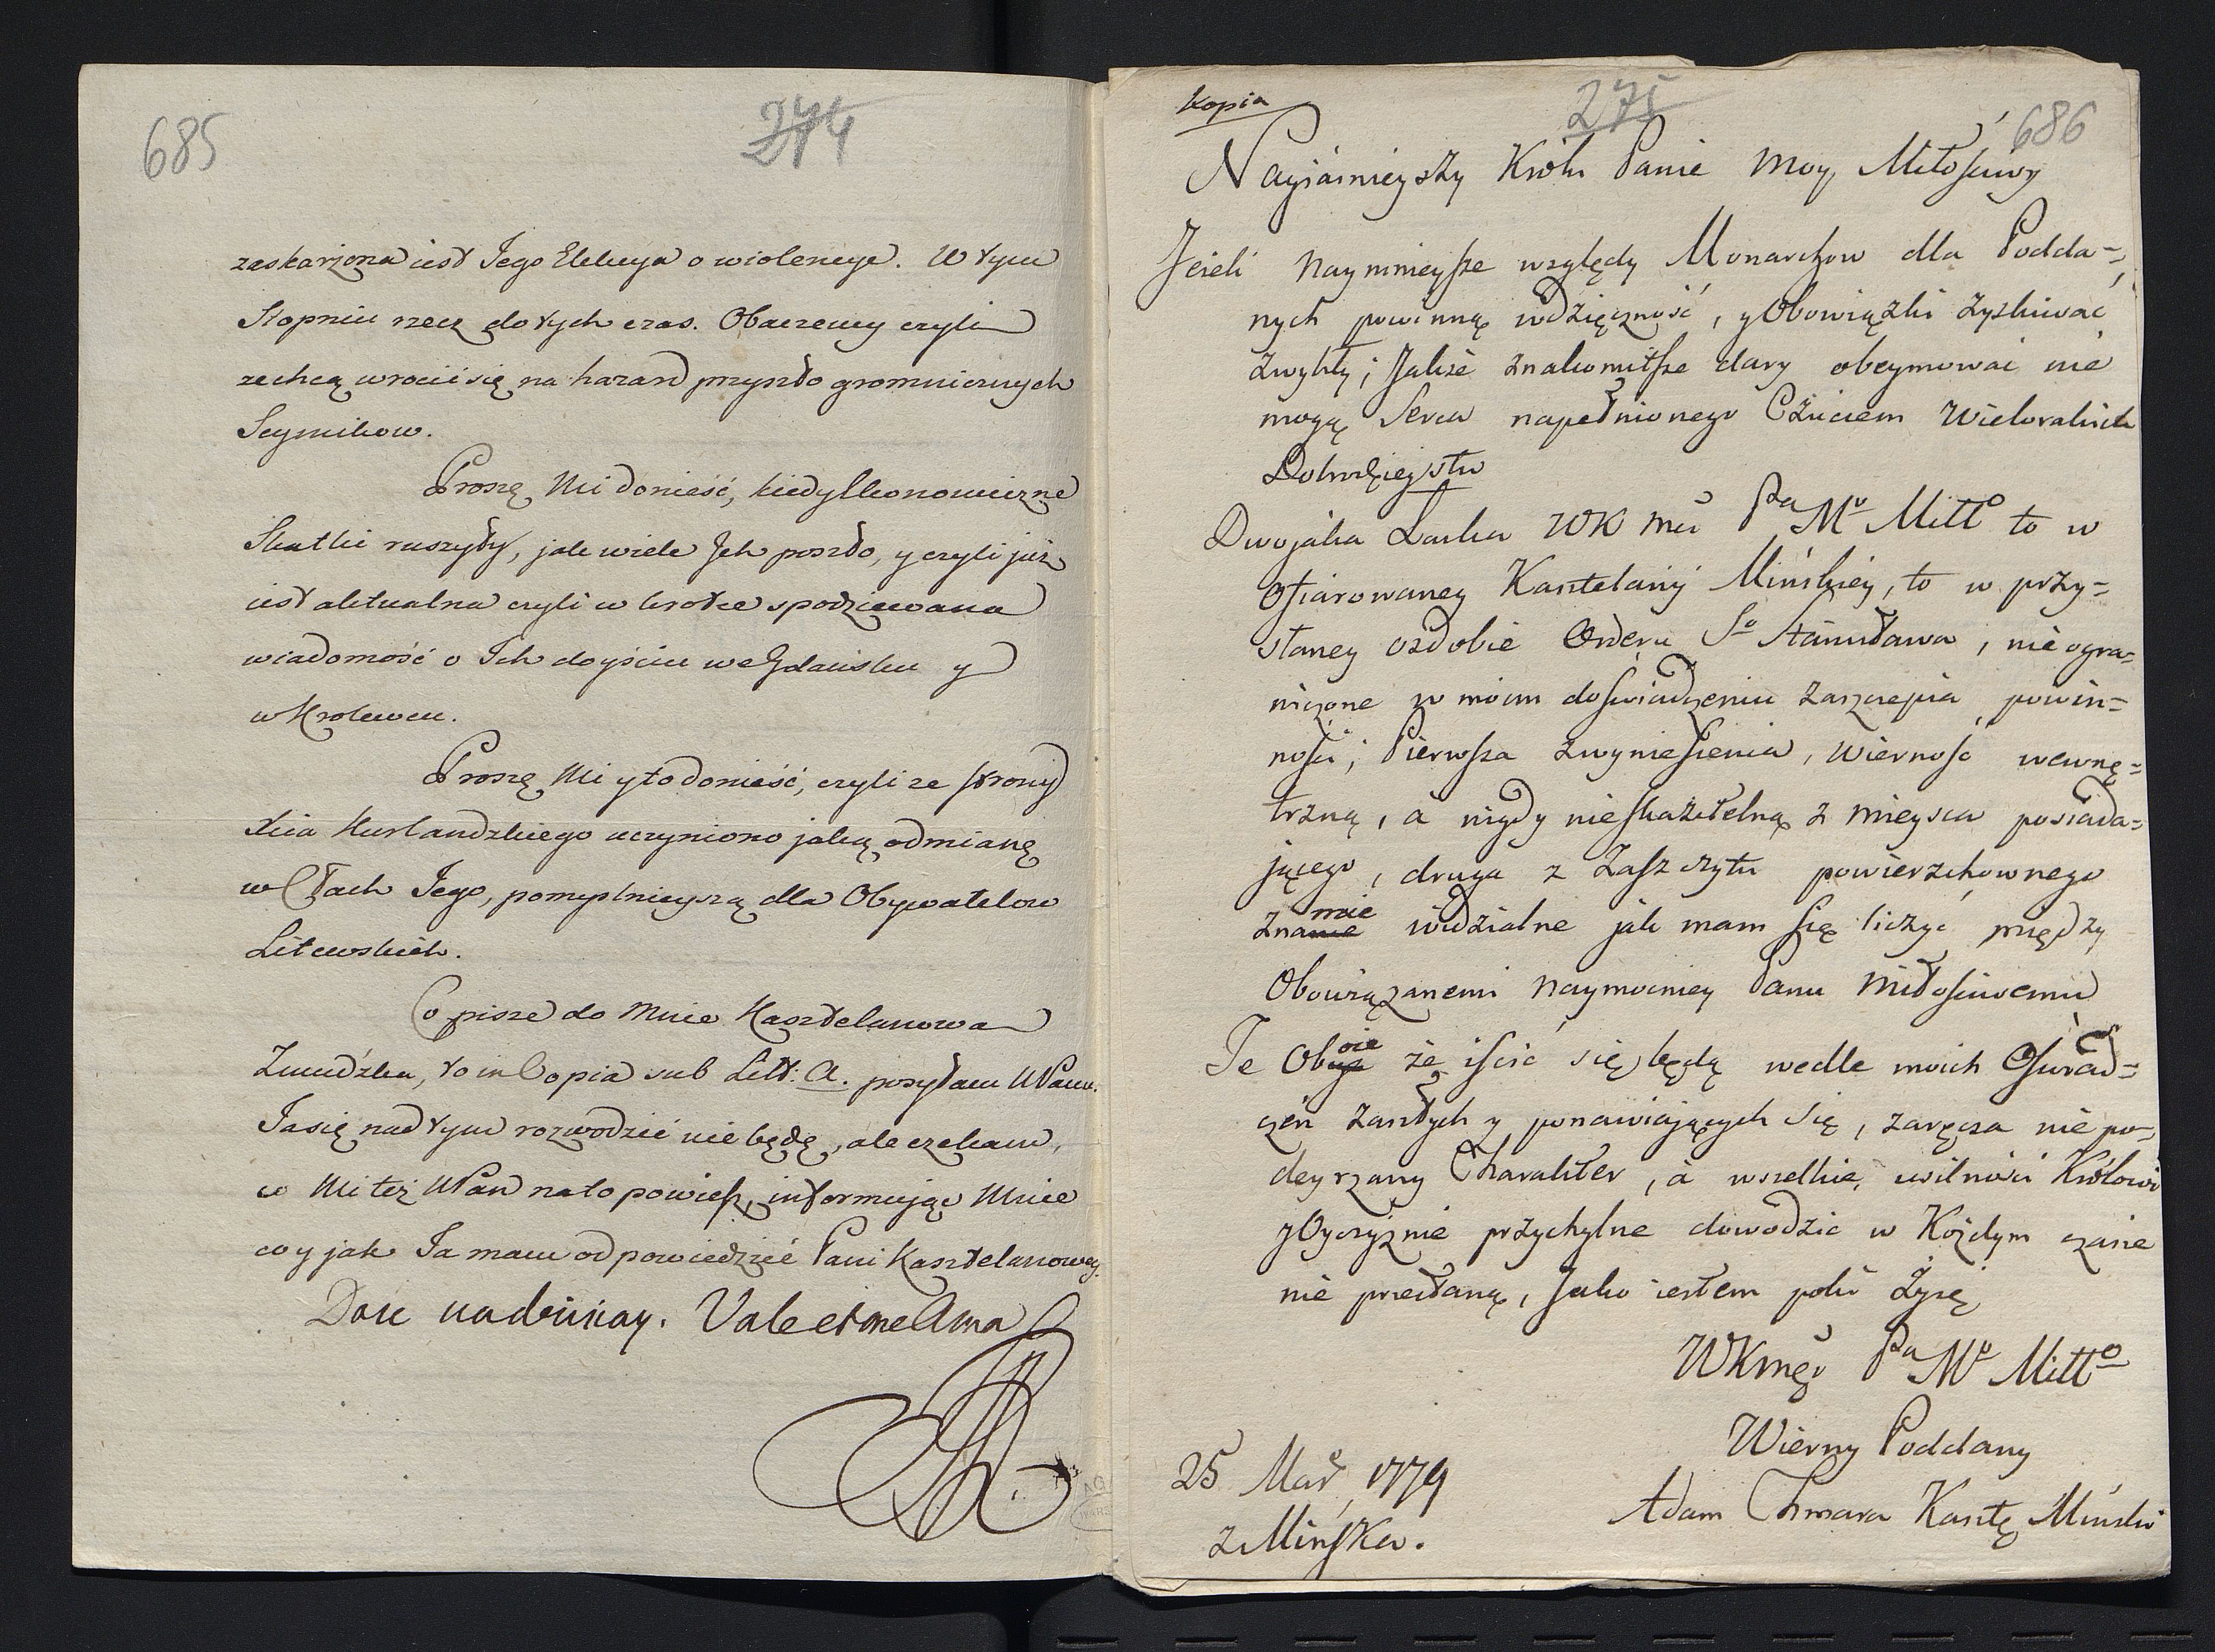 685
274
zaskarżona iest Jego Elekcya o wiolencye. W tym
Stopniu rzecz do tych czas. Obaczemy czyli
zechcą wrocić się na hazard przyszło gromnicznych
Seymikow.
Proszę Mi donieść, kiedy Ekonomiczne
Statki ruszyły, jak wiele Ich poszło, y czyli już
iest aktualna czyli w krotce spodziewana
wiadomość o Ich doyściu we Gdańsku y
w Krolewcu.
Proszę Mi y to donieść, czyli ze strony
Xcia Kurlandzkiego uczyniono jaką odmianę
w Cłach Jego, pomyślnieyszą dla Obywatelow
Litewskich.
Co pisze do Mnie Kasztelanowa
Zmudzka, to in Copia sub Litt: A. posyłam WPanu.
Ja się nad tym rozwodzić nie będę, ale czekam,
co Mi też WPan na to powiesz, informując Mnie
co y jak Ja mam odpowiedzieć Pani Kasztelanowey.
Vale et me Ama
kopia
275
686
Nayiaśnieyszy Królu Panie Moy Miłościwy
Jeżeli naymnieysze względy Monarchow dla Podda=
nych powinną wdzięczność, y Obowiązki zyskiwać
zwykły; Jakże znakomitsze dary obeymować nie
mogą Serca napełnionego Czuciem Wielorakich
Dobrodzieystw
Dwojaka Łaska WK Mci Pa Mo Miłło to w
Ofiarowaney Kasztelanij Mińskiey, to w przy=
słaney ozdobie Orderu So Stanisława, nie ogra=
niczone w moim doświadczeniu zaszczepia powin=
ności; Pierwsza z wyniesienia, wierność wewnę=
trzną, a nigdy nieskazitelną z mieysca posiada=
jącego, druga z Zaszczytu powierzchownego
znamie widzialne jak mam się liczyć między
Obowiązanemi naymocniey Panu Miłościwemu
Te Oboie że iścić się będą wedle moich Oświad=
czeń zaszłych y ponawiających się, zaręcza nie po=
deyrzany Charakter, a wszelkie usilności Królowi
y Oyczyznie przychylne dowodzić w Kożdym czasie
nie przestaną, Jako iestem póki Żyię
WKMci Pa Mo Miłło
Wierny Poddany
25 Mar 1779
z Mińska.
Adam Chmara Kasztę Miński